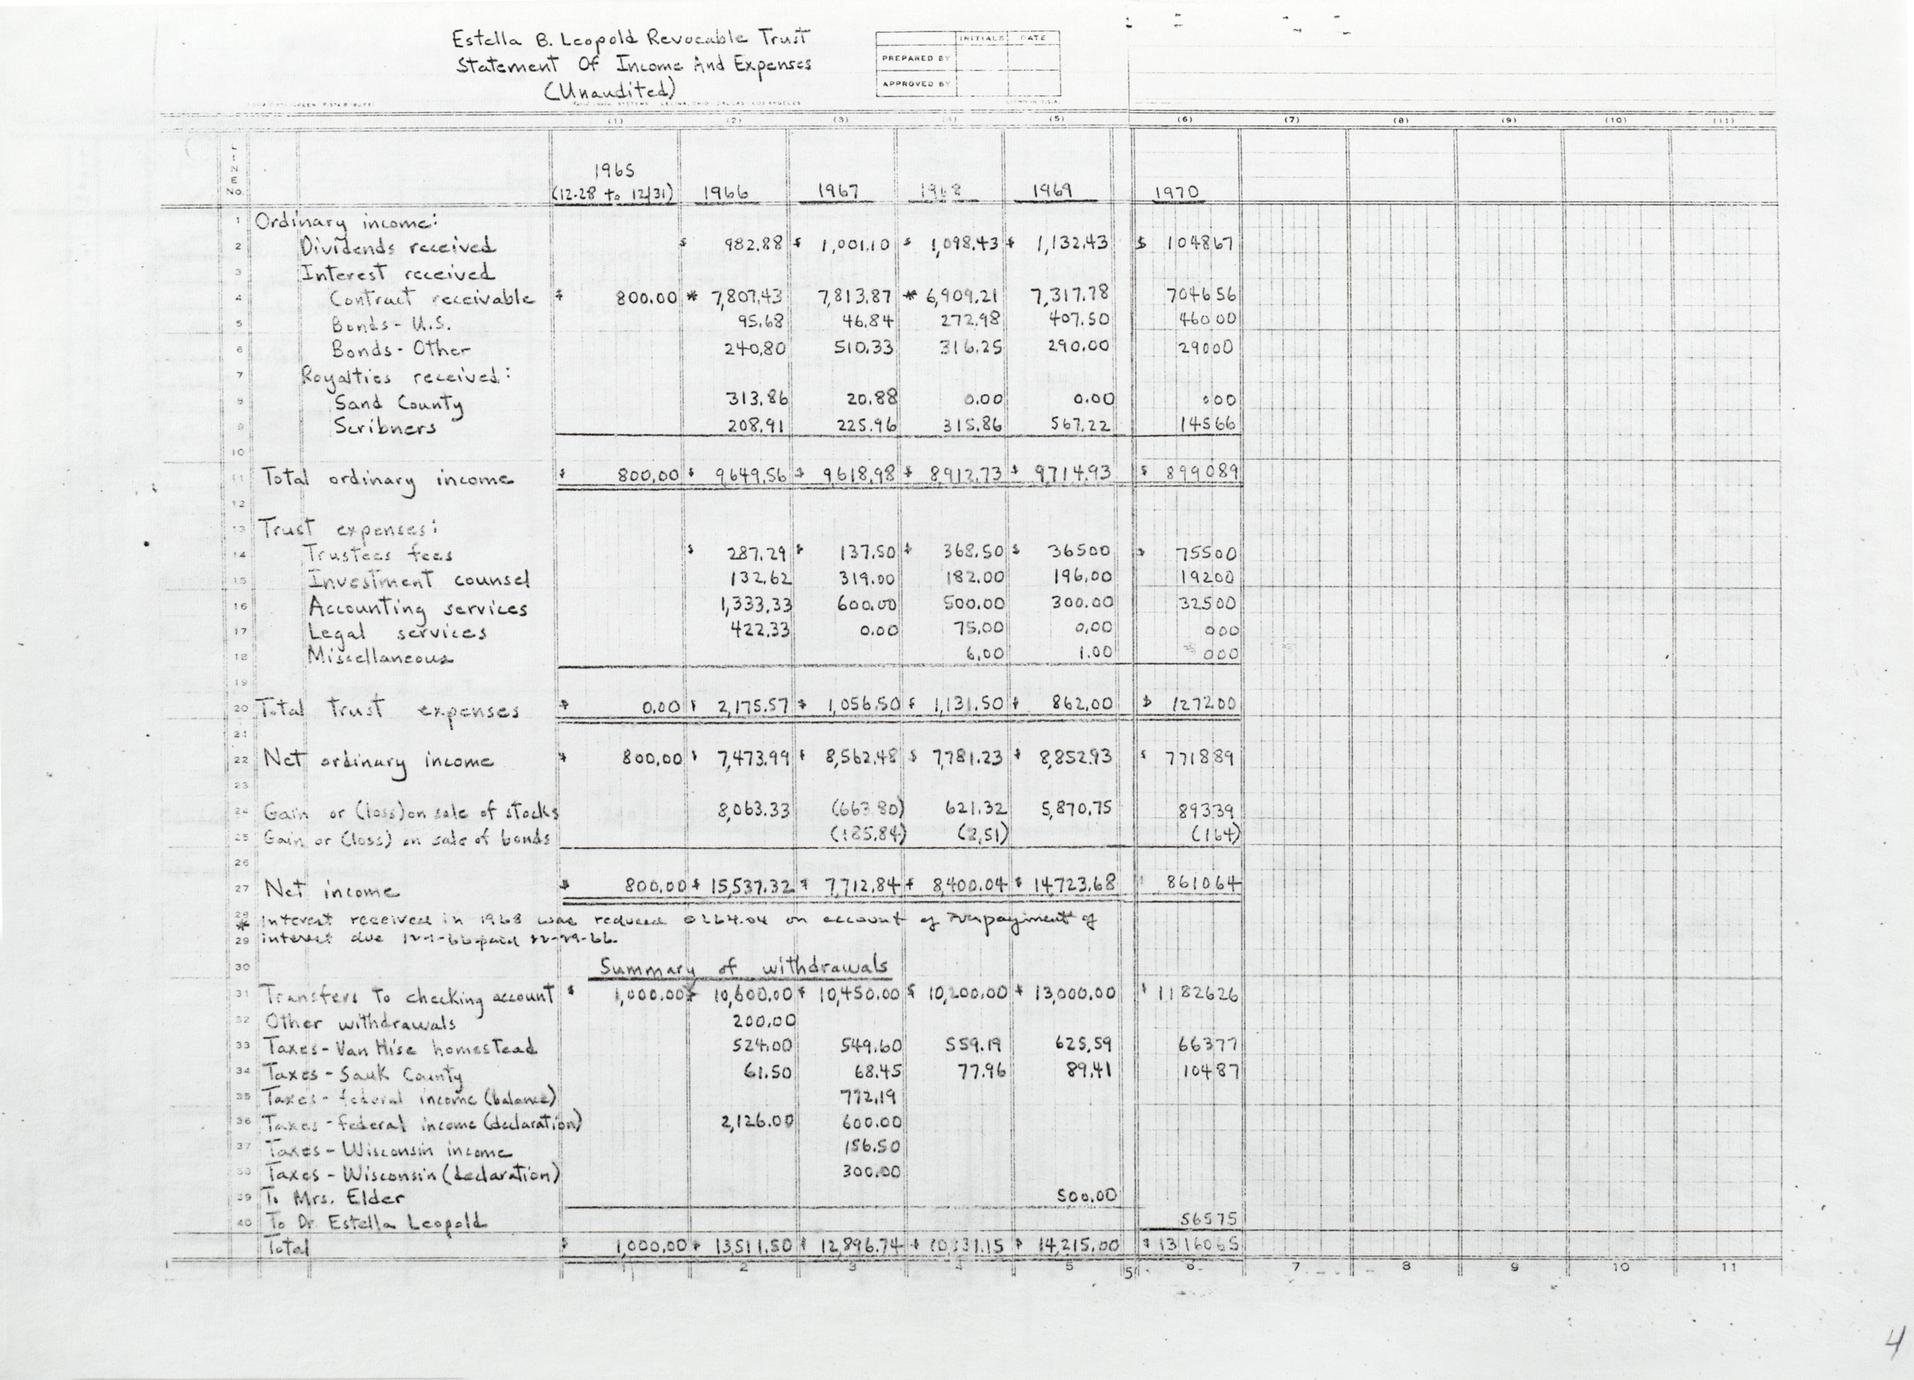 Estella B. Leopold Revocable Trust
Statement Of Income And Expenses
(Unaudited)
INITIALS DATE
PREPARED BY
APPROVED BY
(1) (2) (3) (4) (5) (6) (7) (8) (9) (10) (11)
LINE No. 1965 (12-28 to 12/31) 1966 1967 1968 1969 1970
1 Ordinary income:
2 Dividends received $ 982.88 $ 1,001.10 $ 1,098.43 $ 1,132.43 $ 104867
3 Interest received
4 Contract receivable $ 800.00 * 7,807.43 7,813.87 * 6,909.21 7,317.78 704656
5 Bonds - U.S. 95.68 46.84 272.98 407.50 46000
6 Bonds - Other 240.80 510.33 316.25 290.00 29000
7 Royalties received:
8 Sand County 313.86 20.88 0.00 0.00 000
9 Scribners 208.91 225.96 315.86 567.22 14566
10
11 Total ordinary income $ 800.00 $ 9,649.56 $ 9,618.98 $ 8,912.73 $ 9,714.93 $ 899089
12
13 Trust expenses:
14 Trustees fees $ 287.29 $ 137.50 $ 368.50 $ 36500 $ 75500
15 Investment counsel 132.62 319.00 182.00 196.00 19200
16 Accounting services 1,333.33 600.00 500.00 300.00 32500
17 Legal services 422.33 0.00 75.00 0.00 000
18 Miscellaneous 6.00 1.00 000
19
20 Total trust expenses $ 0.00 $ 2,175.57 $ 1,056.50 $ 1,131.50 $ 862.00 $ 127200
21
22 Net ordinary income $ 800.00 $ 7,473.99 $ 8,562.48 $ 7,781.23 $ 8,852.93 $ 771889
23
24 Gain or (loss) on sale of stocks 8,063.33 (663.80) 621.32 5,870.75 89339
25 Gain or (loss) on sale of bonds (185.84) (2.51) (164)
26
27 Net income $ 800.00 $ 15,537.32 $ 7,712.84 $ 8,400.04 $ 14,723.68 $ 861064
28 * Interest received in 1968 was reduced $264.04 on account of overpayment of
29 interest due 12-1-66 paid 12-29-66.
30 Summary of withdrawals
31 Transfers to checking account $ 1,000.00 $ 10,600.00 $ 10,450.00 $ 10,200.00 $ 13,000.00 $ 1182626
32 Other withdrawals 200.00
33 Taxes - Van Hise homestead 524.00 549.60 559.19 625.59 66377
34 Taxes - Sauk County 61.50 68.45 77.96 89.41 10487
35 Taxes - federal income (balance) 772.19
36 Taxes - federal income (declaration) 2,126.00 600.00
37 Taxes - Wisconsin income 156.50
38 Taxes - Wisconsin (declaration) 300.00
39 To Mrs. Elder 500.00
40 To Dr Estella Leopold 56575
Total $ 1,000.00 $ 13,511.50 $ 12,896.74 $ 14,215.00 $ 1316065
1 2 3 4 5 6 7 8 9 10 11
4